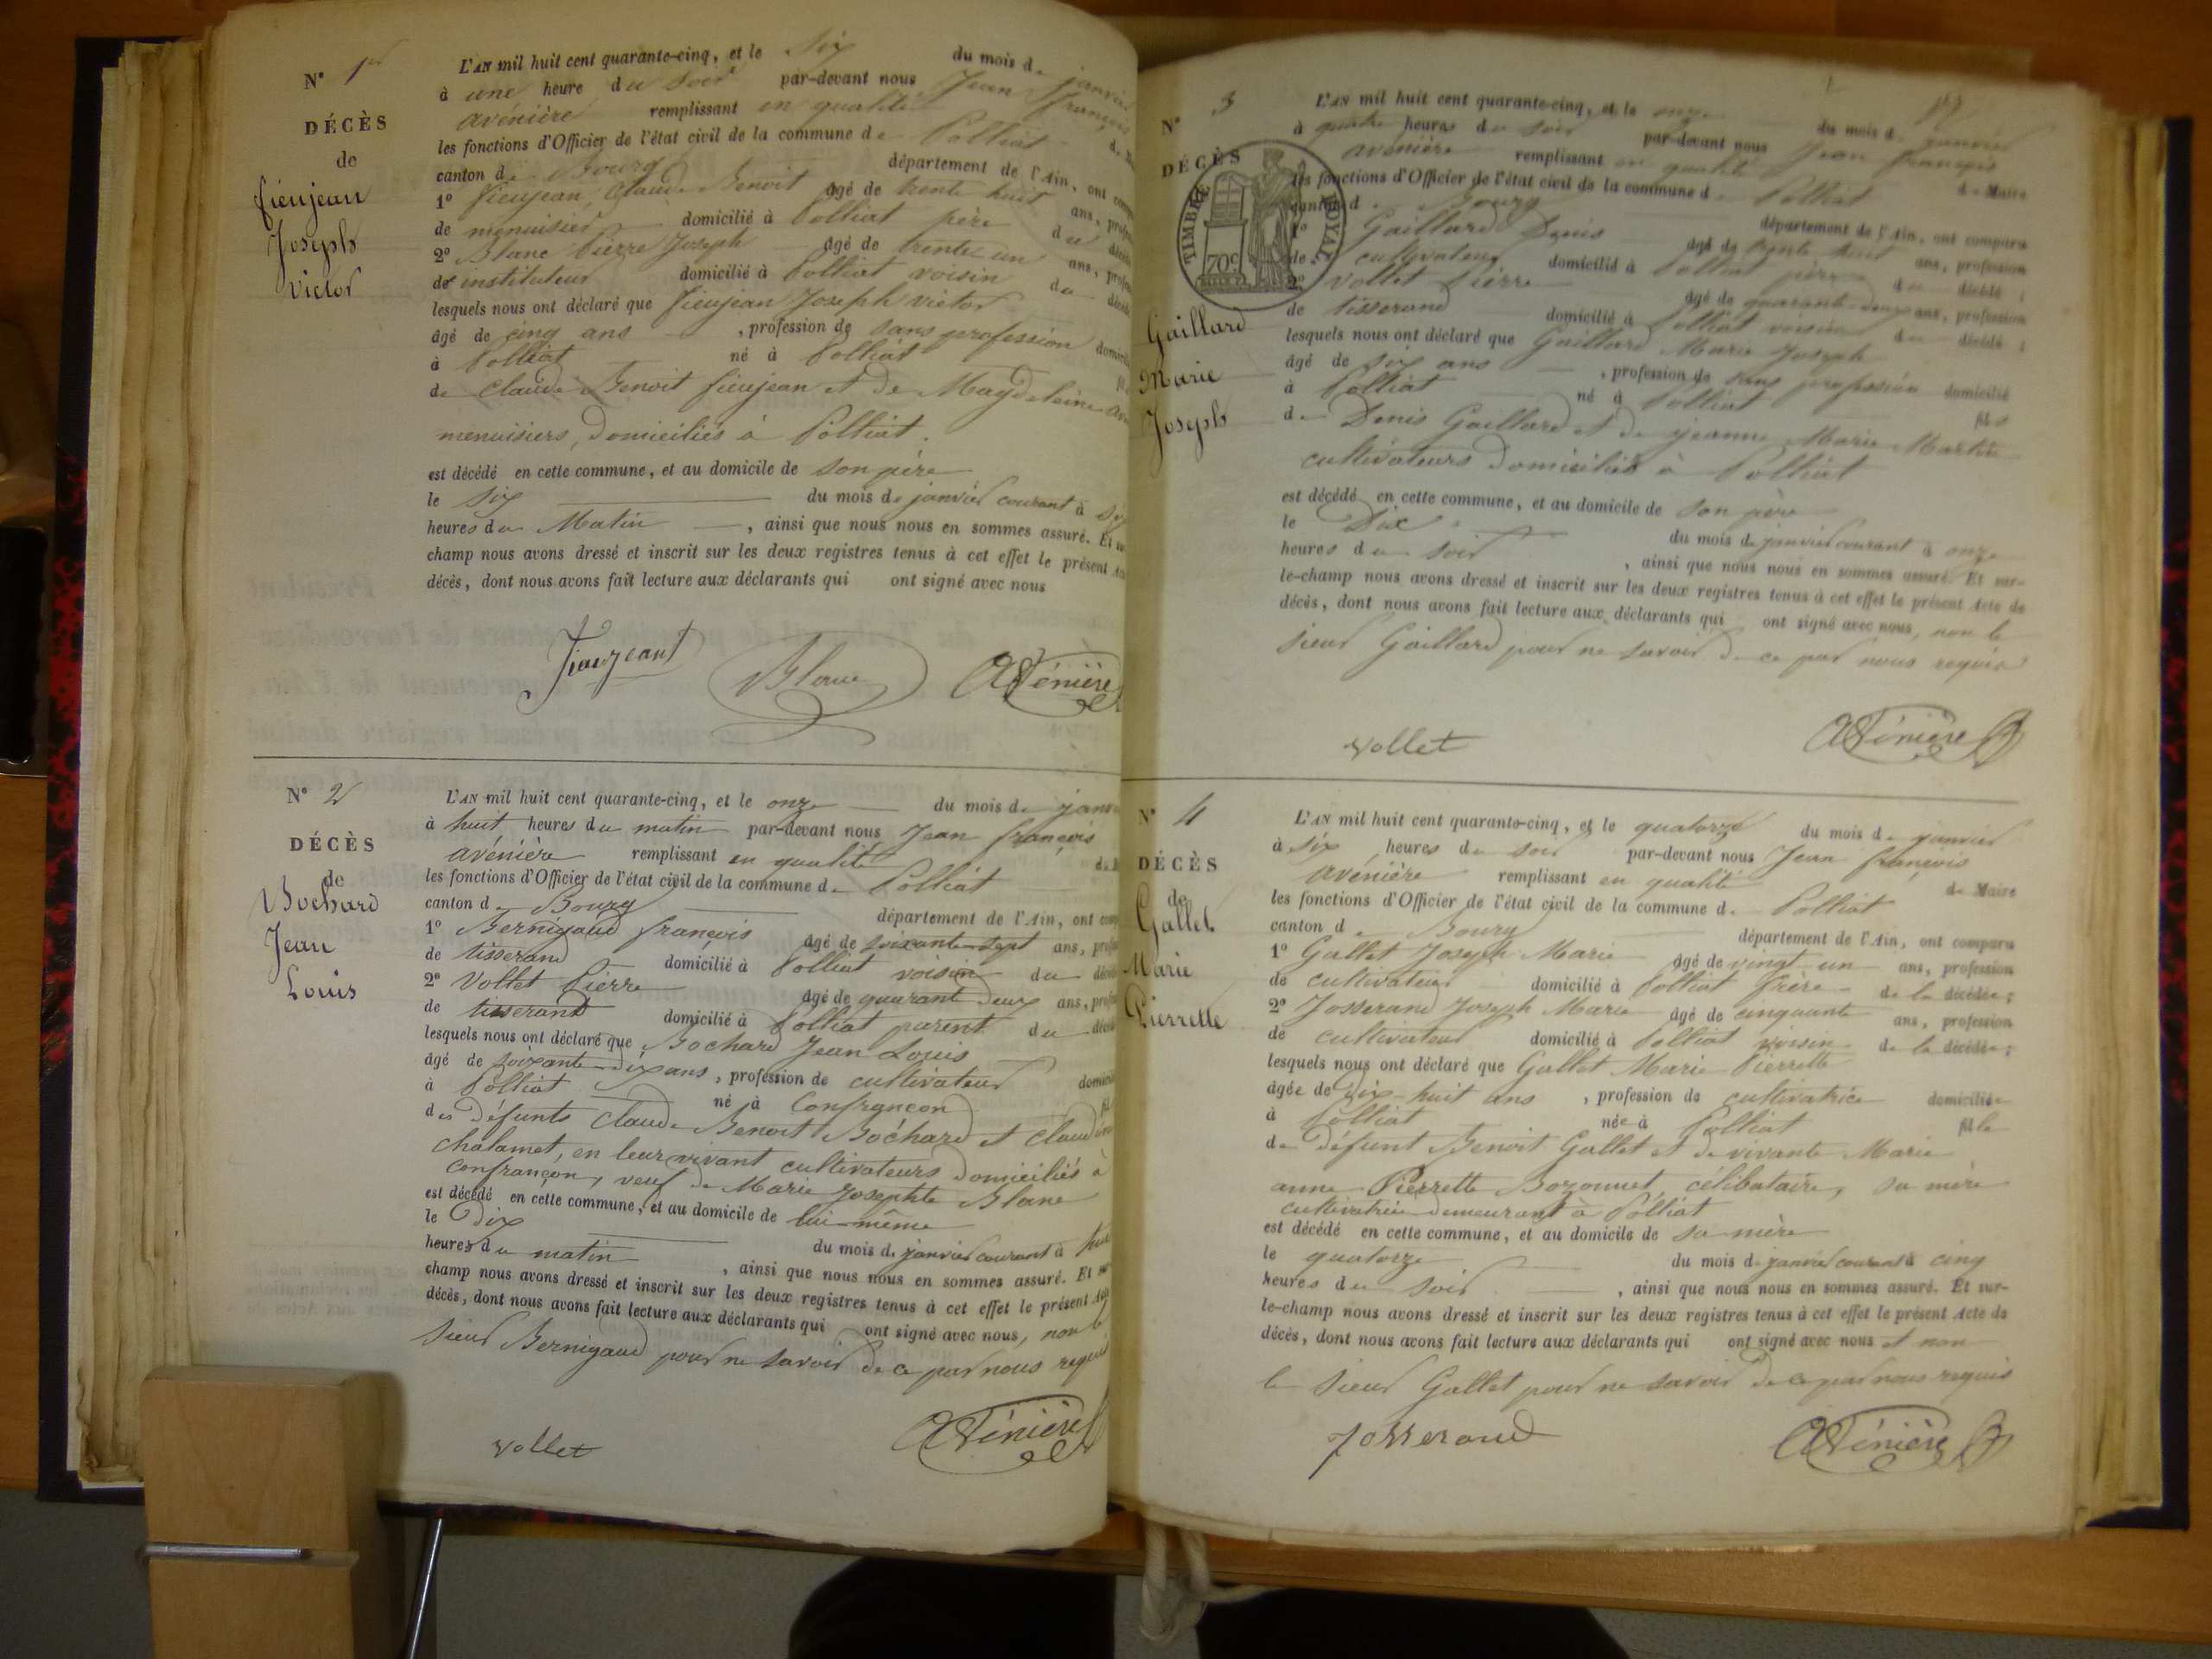 N° 1er
DÉCÈS
de
fieujean
Joseph
Victor
L'AN mil huit cent quarante-cinq, et le six du mois de janvier
à une heure du soir par-devant nous Jean françois
avénière remplissant en qualité de
les fonctions d'Officier de l'état civil de la commune de Polliat
canton de Bourg département de l'Ain, ont
1° fieujean, Claude Benoit âgé de trente huit ans,
de menuisier domicilié à Polliat père du
2° Blanc Pierre Joseph âgé de trente un ans,
de instituteur domicilié à Polliat voisin du
lesquels nous ont déclaré que fieujean Joseph victor
âgé de cinq ans , profession de sans profession
à Polliat né à Polliat
de Claude Benoit fieujean et de Magdeleine
menuisiers, domiciliés à Polliat.
est décédé en cette commune, et au domicile de son père
le six du mois de janvier courant à six
heures du Matin , ainsi que nous nous en sommes assuré. Et
champ nous avons dressé et inscrit sur les deux registres tenus à cet effet le présent
décès, dont nous avons fait lecture aux déclarants qui ont signé avec nous
Blanc Avénière
N° 2
DÉCÈS
de
Bochard
Jean
Louis
L'AN mil huit cent quarante-cinq, et le onze du mois de janvier
à huit heures du matin par-devant nous Jean françois
avénière remplissant en qualité
les fonctions d'Officier de l'état civil de la commune de Polliat
canton de Bourg département de l'Ain, ont
1° Bernigaud françois âgé de soixante-sept ans,
de tisserand domicilié à Polliat voisin du
2° Vollet Pierre âgé de quarant deux ans,
de tisserand domicilié à Polliat parent du
lesquels nous ont déclaré que Bochard Jean Louis
âgé de soixante-dix ans, profession de cultivateur
à Polliat né à Confrançon
des défunts Claude Benoit Bochard et Claudine
chalamet, en leur vivant cultivateurs domiciliés à
confrançon, veuf de Marie Josephte Blanc
est décédé en cette commune, et au domicile de lui-même
le dix du mois de janvier courant à huit
heures du matin , ainsi que nous nous en sommes assuré. Et
champ nous avons dressé et inscrit sur les deux registres tenus à cet effet le présent
décès, dont nous avons fait lecture aux déclarants qui ont signé avec nous, non le
sieur Bernigaud pour ne savoir de ce par nous requis
vollet Avénière
N° 3
DÉCÈS
TIMBRE ROYAL
70c
Gaillard
Marie
Joseph
L'AN mil huit cent quarante-cinq, et le onze du mois de janvier
à quatre heures du soir par-devant nous Jean françois
avénière remplissant en qualité de Maire
les fonctions d'Officier de l'état civil de la commune de Polliat
canton de Bourg département de l'Ain, ont comparu
1° Gaillard Denis âgé de trente huit ans, profession
de cultivateur domicilié à Polliat père du décédé ;
2° Vollet Pierre âgé de quarant-deux ans, profession
de tisserand domicilié à Polliat voisin du décédé ;
lesquels nous ont déclaré que Gaillard Marie Joseph
âgé de six ans , profession de sans profession domicilié
à Polliat né à Polliat fils
de Denis Gaillard et de jeanne Marie
cultivateurs domiciliés à Polliat
est décédé en cette commune, et au domicile de son père
le dix du mois de janvier courant à onze
heures du soir , ainsi que nous nous en sommes assuré. Et sur-
le-champ nous avons dressé et inscrit sur les deux registres tenus à cet effet le présent Acte de
décès, dont nous avons fait lecture aux déclarants qui ont signé avec nous, non le
sieur Gaillard pour ne savoir de ce par nous requis
vollet Avénière
N° 4
DÉCÈS
de
Gallet
Marie
Pierrette
L'AN mil huit cent quarante-cinq, et le quatorze du mois de janvier
à six heures du soir par-devant nous Jean françois
avénière remplissant en qualité de Maire
les fonctions d'Officier de l'état civil de la commune de Polliat
canton de Bourg département de l'Ain, ont comparu
1° Gallet Joseph Marie âgé de vingt-un ans, profession
de cultivateur domicilié à Polliat frère de la décédée ;
2° Josserand Joseph Marie âgé de cinquante ans, profession
de cultivateur domicilié à Polliat voisin de la décédée ;
lesquels nous ont déclaré que Gallet Marie Pierrette
âgée de Dix-huit ans , profession de cultivatrice domiciliée
à Polliat née à Polliat fille
de défunt Benoit Gallet et de vivante Marie
anne Pierrette Bozonnet, célibataire, sa mère
cultivatrice demeurant à Polliat
est décédé en cette commune, et au domicile de sa mère
le quatorze du mois de janvier courant à cinq
heures du soir , ainsi que nous nous en sommes assuré. Et sur-
le-champ nous avons dressé et inscrit sur les deux registres tenus à cet effet le présent Acte de
décès, dont nous avons fait lecture aux déclarants qui ont signé avec nous et non
le sieur Gallet pour ne savoir de ce par nous requis
Josserand Avénière